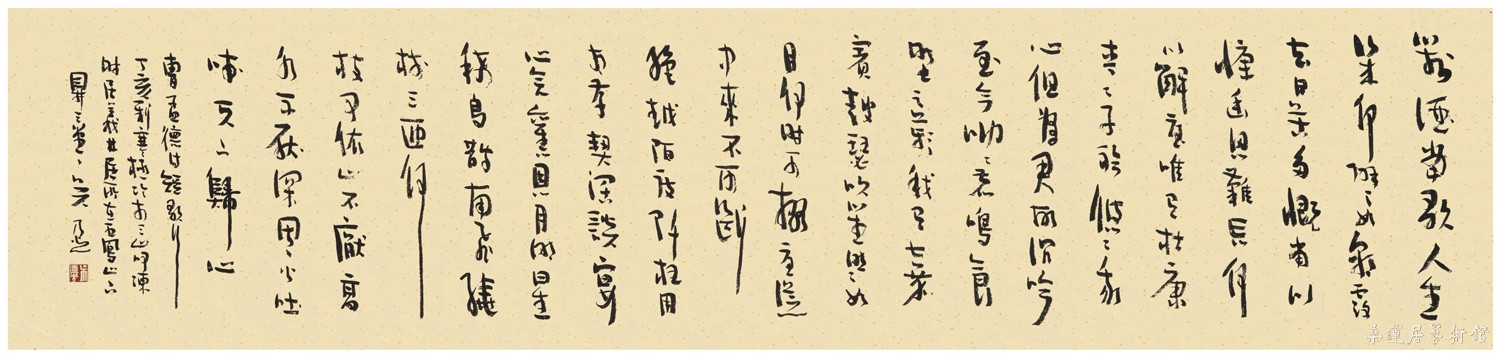 對酒當歌人生
幾何譬如朝露
去日苦多慨當以
慷幽思難忘何
以解憂唯有杜康
青々子衿悠々我
心但為君故沉吟
至今呦々鹿鳴食
野之苹我有嘉
賓鼓瑟吹笙明々如
月何時可掇憂從
中來不可斷
越陌度阡枉用
相存契闊談宴
心念舊恩月明星
稀烏鵲南飛繞
樹三匝何
枝可依山不厭高
水不厭深周公吐
哺天下歸心
曹孟德詩短歌行
丁亥
時居義井居所在五鳳山下
居藝術館